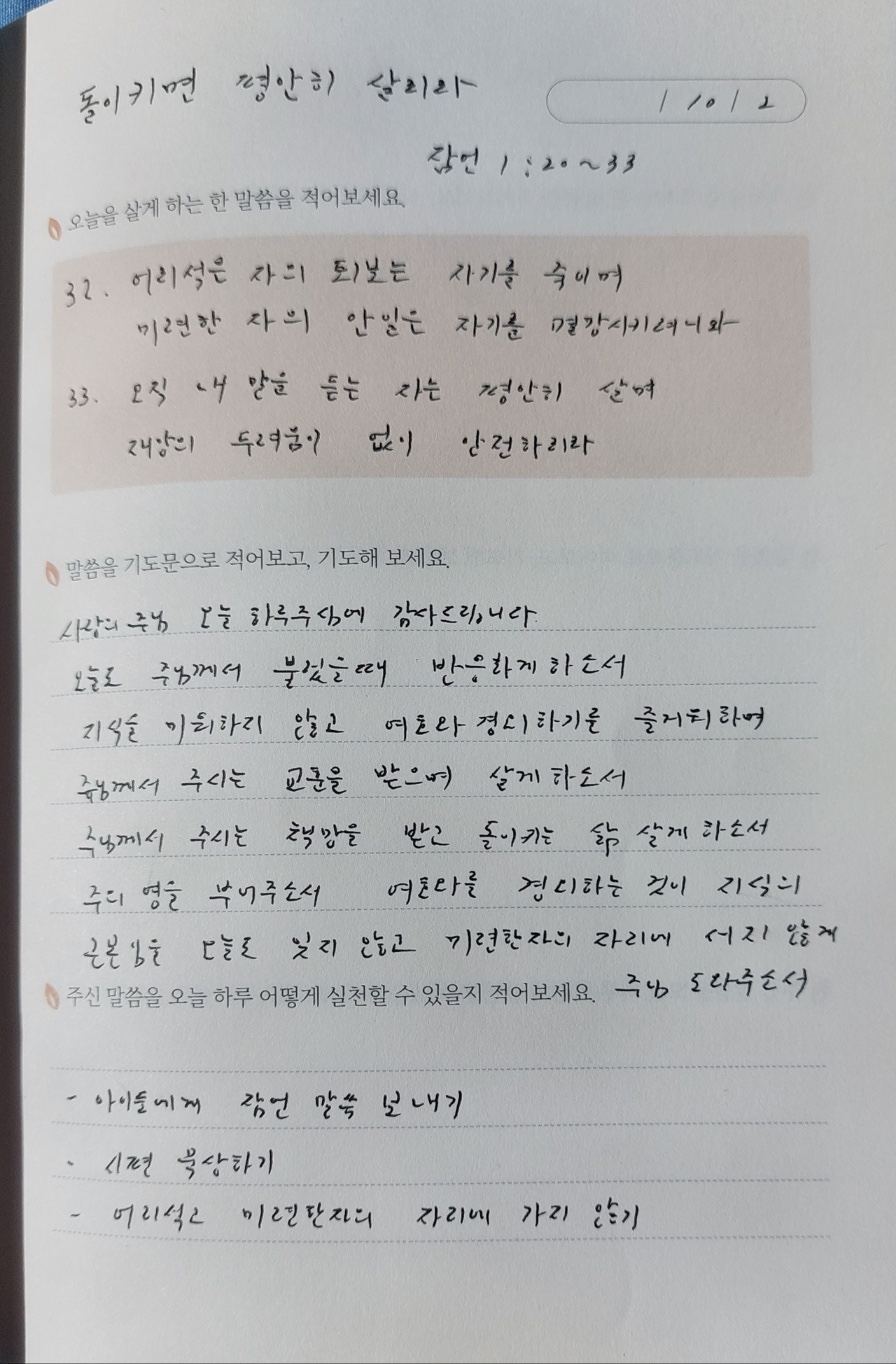 돌이키면 평안히 살리라
/ 10 / 2
잠언 1:20~33
오늘을 살게 하는 한 말씀을 적어보세요.
32. 어리석은 자의 퇴보는 자기를 죽이며
미련한 자의 안일은 자기를 멸망시키려니와
33. 오직 내 말을 듣는 자는 평안히 살며
재앙의 두려움이 없이 안전하리라
말씀을 기도문으로 적어보고, 기도해 보세요.
사랑의 주님 오늘 하루주심에 감사드립니다.
오늘도 주님께서 불렀을때 반응하게 하소서
지식을 미워하지 않고 여호와 경외하기를 즐거워하며
주님께서 주시는 교훈을 받으며 살게 하소서
주님께서 주시는 책망을 받고 돌이키는 삶 살게 하소서
주의 영을 부어주소서 여호와를 경외하는 것이 지식의
근본임을 오늘도 잊지 않고 미련한자의 자리에 서지 않게
주님 도와주소서
주신 말씀을 오늘 하루 어떻게 실천할 수 있을지 적어보세요.
- 아이들에게 잠언 말씀 보내기
- 시편 묵상하기
- 어리석고 미련한자의 자리에 가지 않기